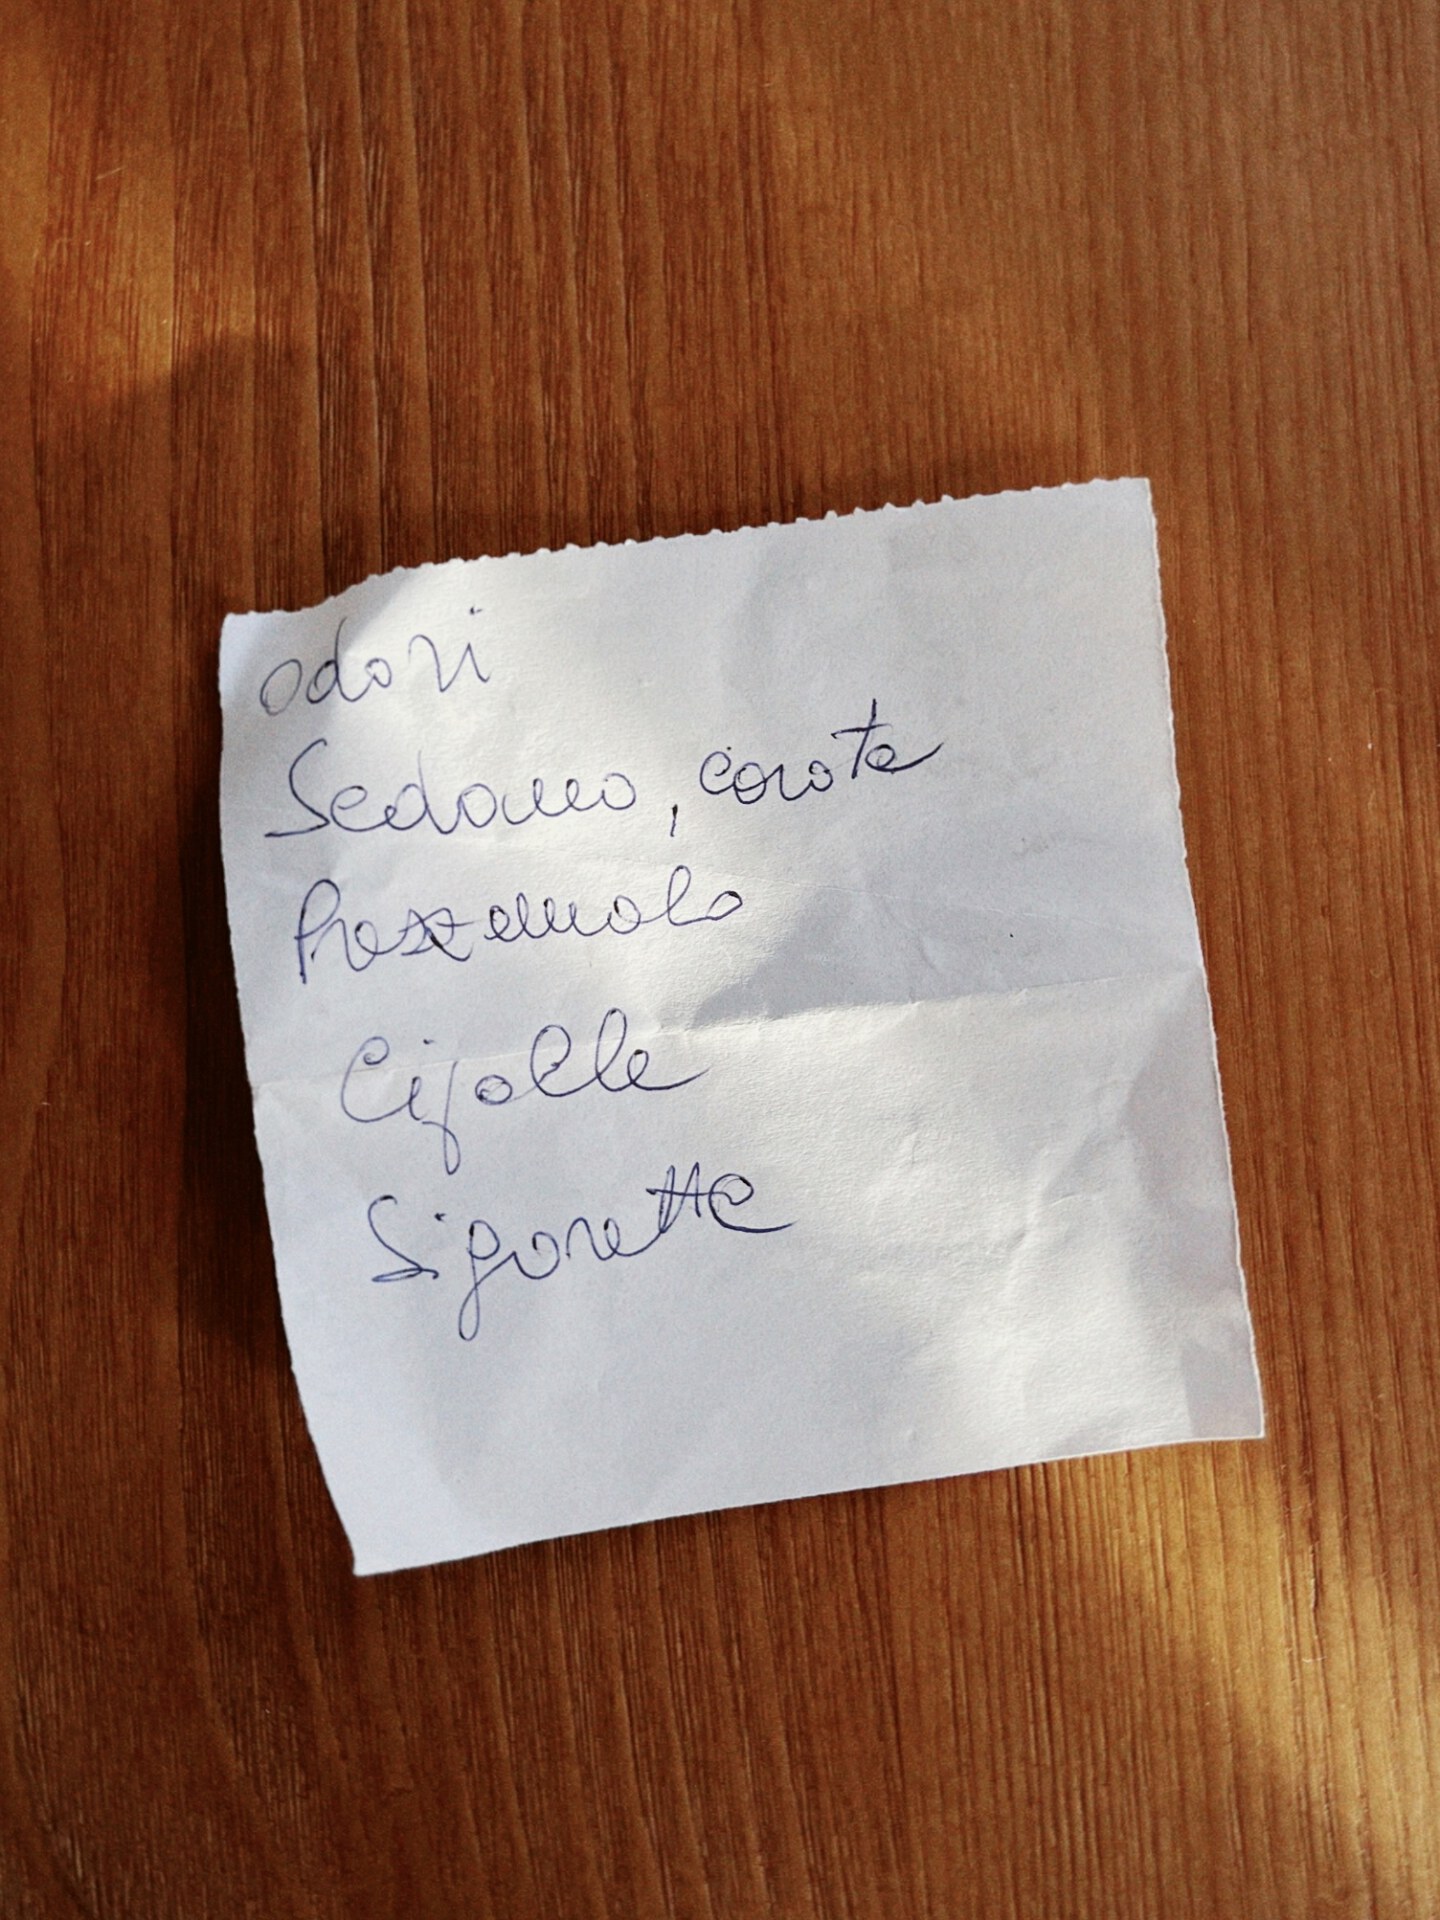 odori
Sedano, carote
Prezzemolo
Cipolle
Sigarette